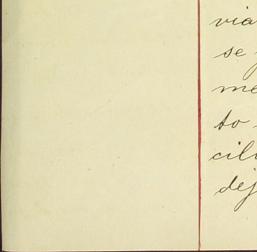 via
se
me
to
cili
dej